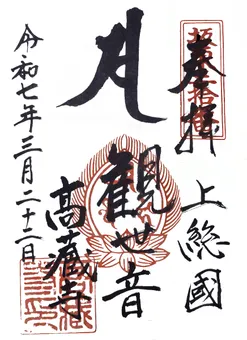 奉拝
坂東三十番
上総國
観世音
高蔵寺
令和七年三月二十二日